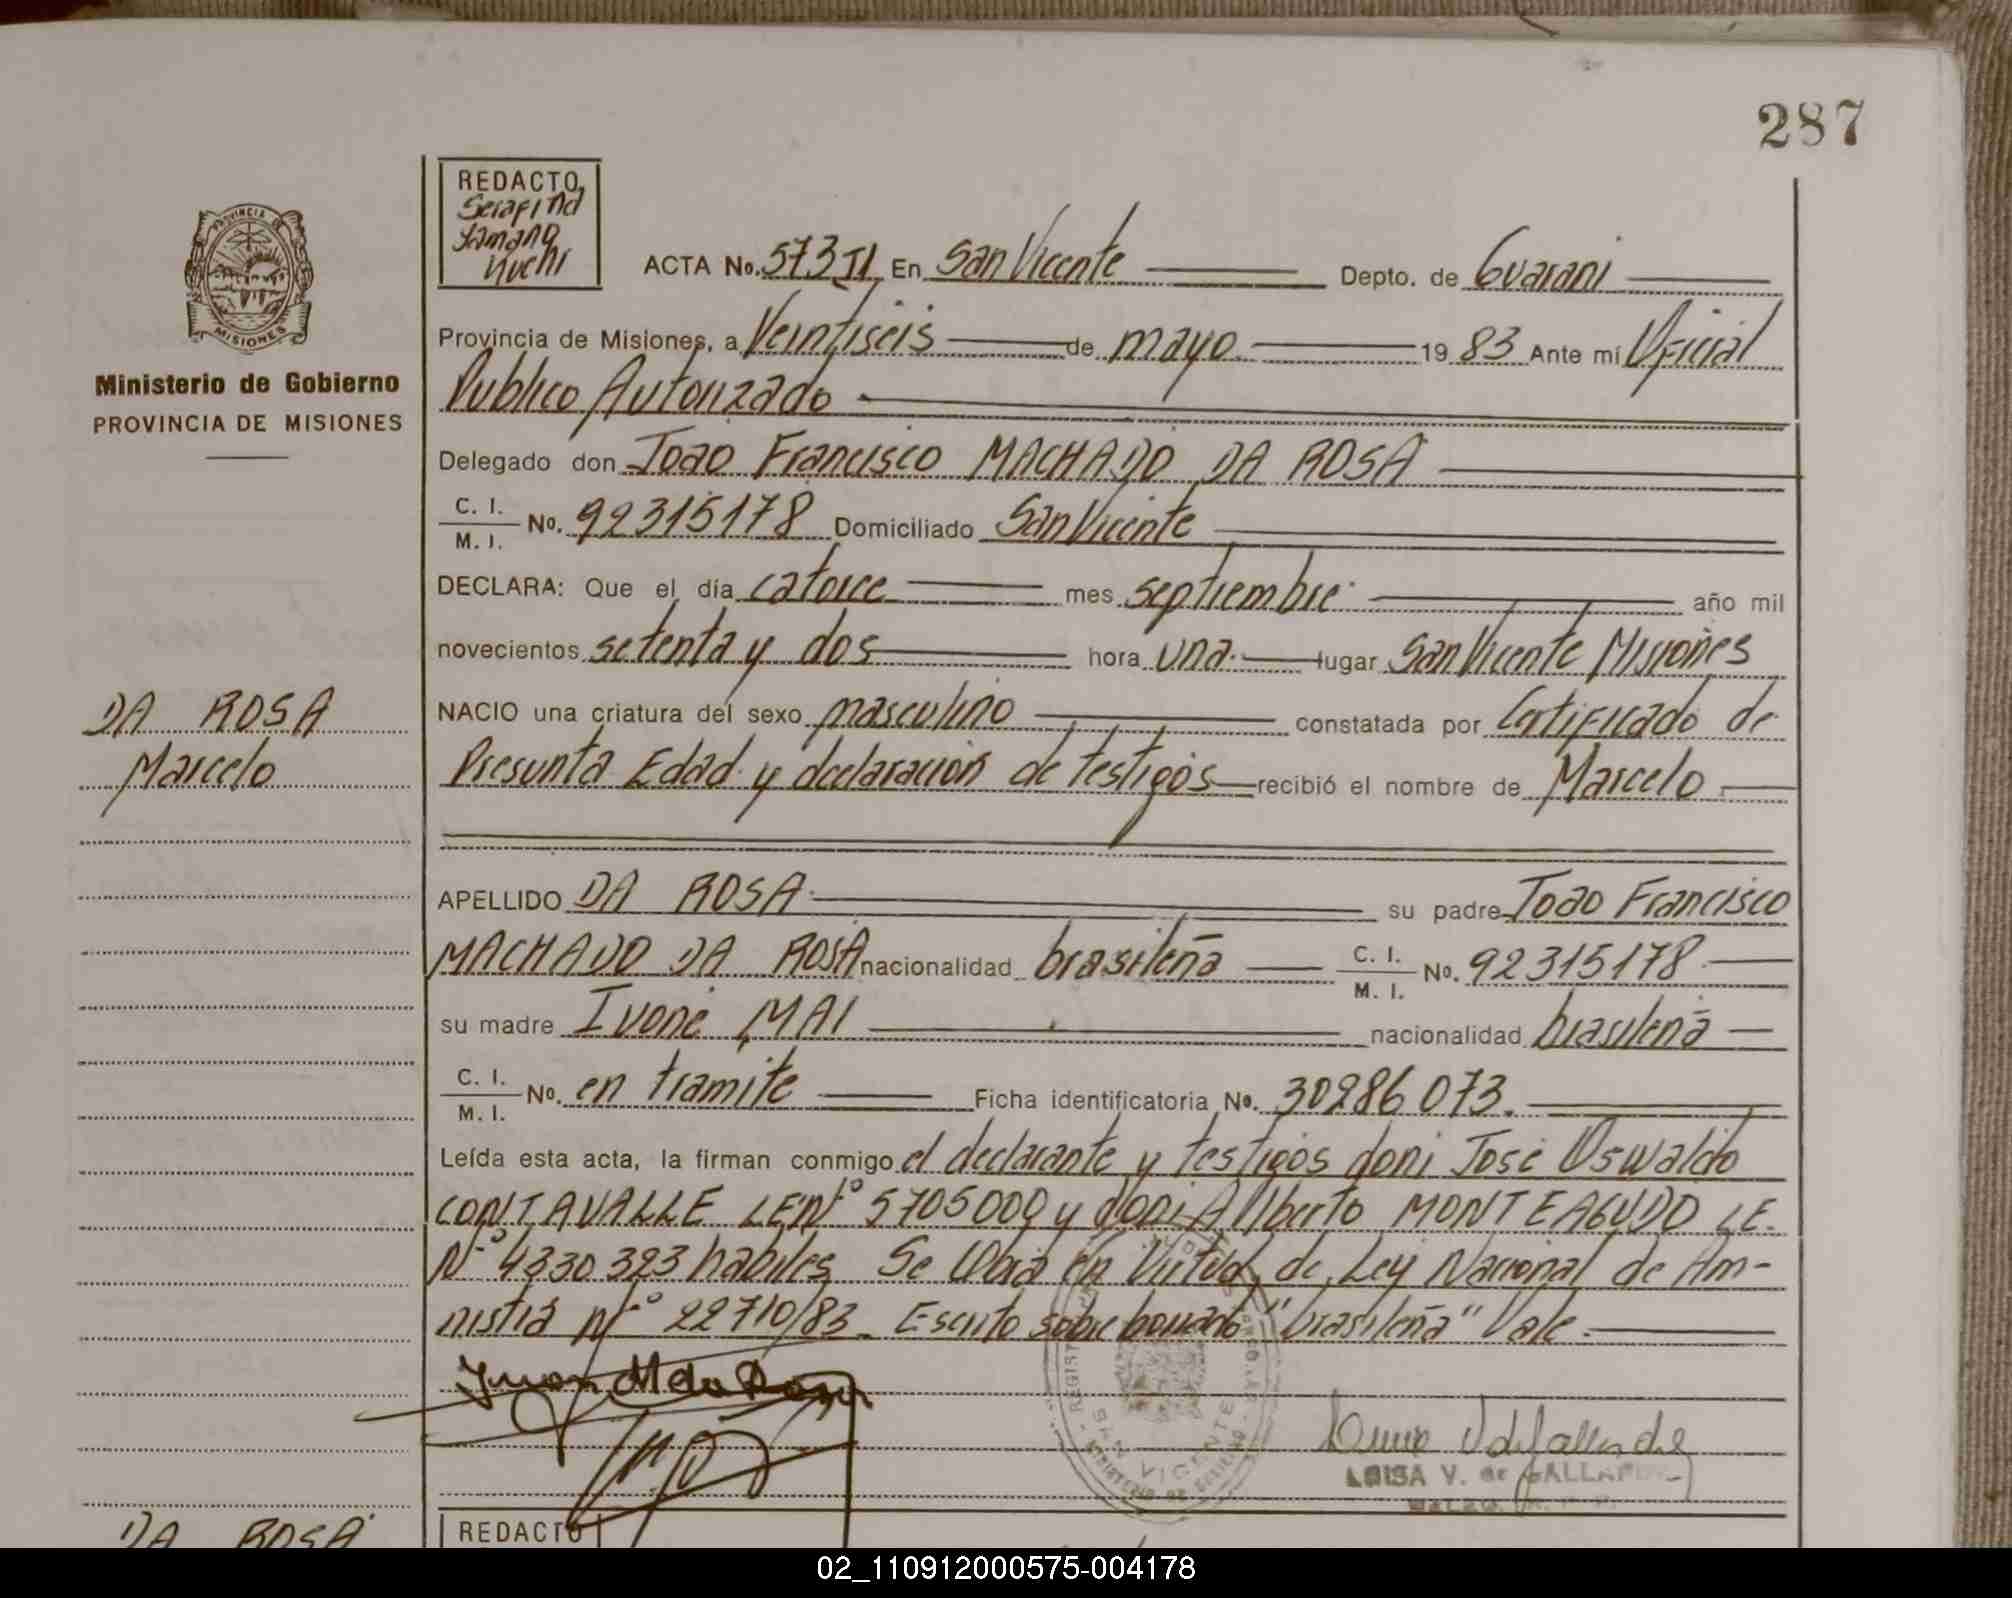 287
REDACTO
Serafina
Yamana
yuchi
ACTA No. 573 II En San Vicente Depto. de Guarani
Provincia de Misiones, a Veintiseis de mayo 19 83 Ante mí Oficial
Publico Autorizado
PROVINCIA DE MISIONES
Ministerio de Gobierno
PROVINCIA DE MISIONES
Delegado don Joao Francisco MACHADO DA ROSA
C. I. M. I. No. 92315178 Domiciliado San Vicente
DECLARA: Que el día catorce mes septiembre año mil
novecientos setenta y dos hora una lugar San Vicente Misiones
NACIO una criatura del sexo masculino constatada por Certificado de
Presunta Edad y declaración de testigos recibió el nombre de Marcelo
DA ROSA
Marcelo
APELLIDO DA ROSA su padre Joao Francisco
MACHADO DA ROSA nacionalidad brasileña C. I. M. I. No. 92315178
su madre Ivone MAI nacionalidad brasileña
C. I. M. I. No. en tramite Ficha identificatoria No. 30286073.
Leída esta acta, la firman conmigo el declarante y testigos don: José Oswaldo
CONTAVALLE LE Nº 5705000 y don: Alberto MONTEAGUDO LE.
Nº 4330323 habiles. Se labra en Virtud de Ley Nacional de Am-
nistia Nº 22710/83. Escrito sobre borrado "brasileña" Vale.
SAN VICENTE
LUISA V. de GALLARDO
DA ROSA
REDACTO
02_110912000575-004178